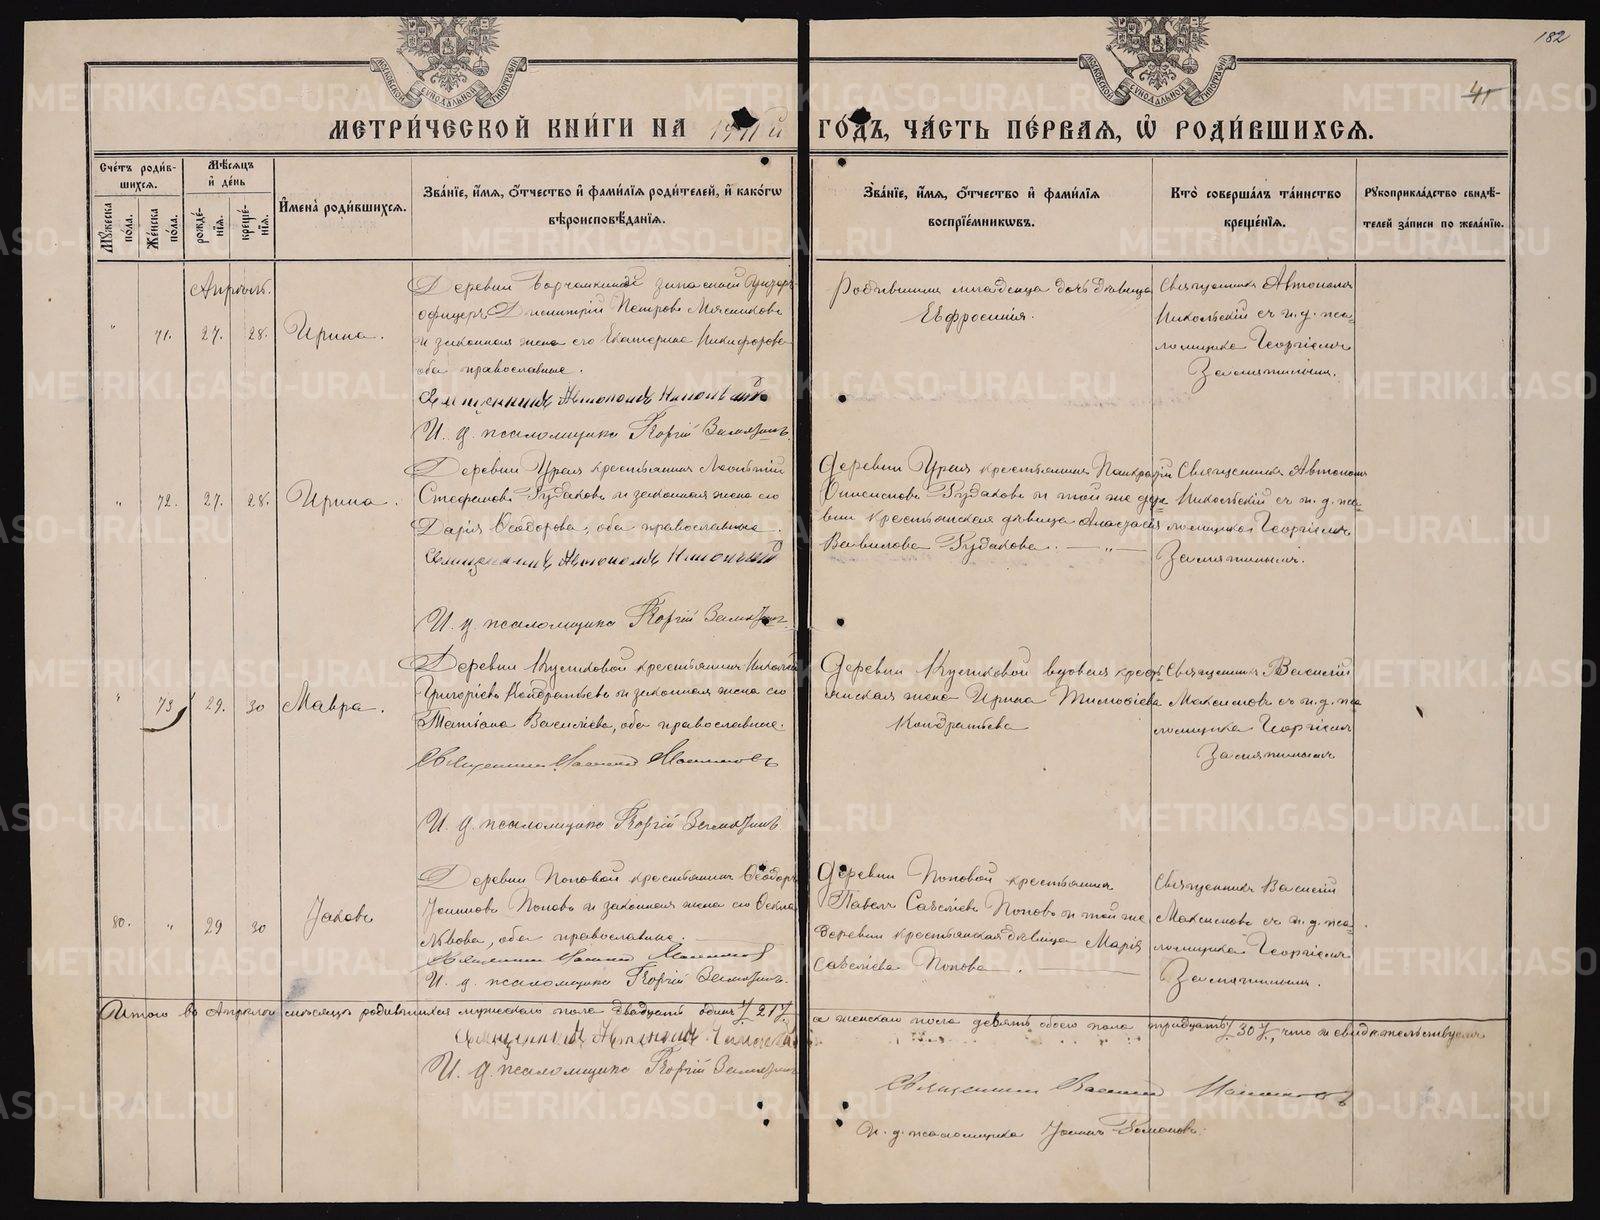 182
41
МОСКОВСКОЙ СѴНОДАЛЬНОЙ ТИПОГРАФІИ
МОСКОВСКОЙ СѴНОДАЛЬНОЙ ТИПОГРАФІИ
МЕТРИЧЕСКОЙ КНИГИ НА 1911й ГОДЪ, ЧАСТЬ ПЕРВАЯ, Ѡ РОДИВШИХСЯ.
Счетъ родив-
шихся.
Мужеска
пола.
Женска
пола.
Мѣсяцъ
и день
рожде-
нія.
креще-
нія.
Имена родившихся.
Званіе, имя, отчество и фамилія родителей, и какогѡ
вѣроисповѣданія.
Званіе, имя, отчество и фамилія
воспріемникѡвъ.
Кто совершалъ таинство
крещенія.
Рукоприкладство свидѣ-
телей записи по желанію.
Апрѣль.
" 71. 27. 28. Ирина.
Деревни запасной Унтеръ-
офицеръ Димитрій Петровъ Мясниковъ
и законная жена его Екатерина Никифорова
оба православные.
Священникъ Автономъ Никольскій
И. д. псаломщика Георгій Замятинъ.
Родившейся младенца дочь дѣвица
Евфросинія.
Священникъ Автономъ
Никольскій съ и. д. пса-
ломщика Георгіемъ
Замятинымъ.
" 72. 27. 28. Ирина.
Деревни крестьянинъ Леонтій
Стефановъ Рудаковъ и законная жена его
Дарія Ѳеодорова, оба православные.
Священникъ Автономъ Никольскій
И. д. псаломщика Георгій Замятинъ
Деревни крестьянинъ Панкратій
Рудаковъ и той же дере-
вни крестьянская дѣвица Анастасія
Вавилова Рудакова. — " —
Священникъ Автономъ
Никольскій съ и. д. пса-
ломщика Георгіемъ
Замятинымъ.
" 73 29. 30 Мавра.
Деревни Куликовой крестьянинъ Николай
Григоріевъ Кондратьевъ и законная жена его
Татіана Василіева, оба православные.
Священникъ Василій Максимовъ
И. д. псаломщика Георгій Замятинъ
Деревни Куликовой вдовая кресть-
янская жена Ирина Тимоѳіева
Кондратьева
Священникъ Василій
Максимовъ съ и. д. пса-
ломщика Георгіемъ
Замятинымъ
80. " 29 30 Іаковъ
Деревни Поповой крестьянинъ Ѳеодоръ
Іоанновъ Поповъ и законная жена его Ѳекла
Львова, оба православные.
Священникъ Василій Максимовъ
И. д. псаломщика Георгій Замятинъ.
Деревни Поповой крестьянинъ
Павелъ Савеліевъ Поповъ и той же
деревни крестьянская дѣвица Марія
Савеліева Попова.
Священникъ Василій
Максимовъ съ и. д. пса-
ломщика Георгіемъ
Замятинымъ.
Итого въ Апрѣлѣ мѣсяцѣ родившихся мужескаго пола двадцать одинъ /21/, а женскаго пола девять обоего пола тридцать /30/, что и свидѣтельствуемъ
Священникъ Автономъ Никольскій
И. д. псаломщика Георгій Замятинъ
Священникъ Василій Максимовъ
И. д. псаломщика Іоаннъ
METRIKI.GASO-URAL.RU